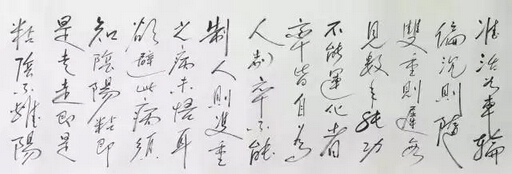 准活似車輪
偏沉則隨
雙重則滯每
見數年純功
不能運化者
率皆自為
人制率不能
制人則雙重
之病未悟耳
欲避此病須
知陰陽粘即
是走走即是
粘陰不離陽